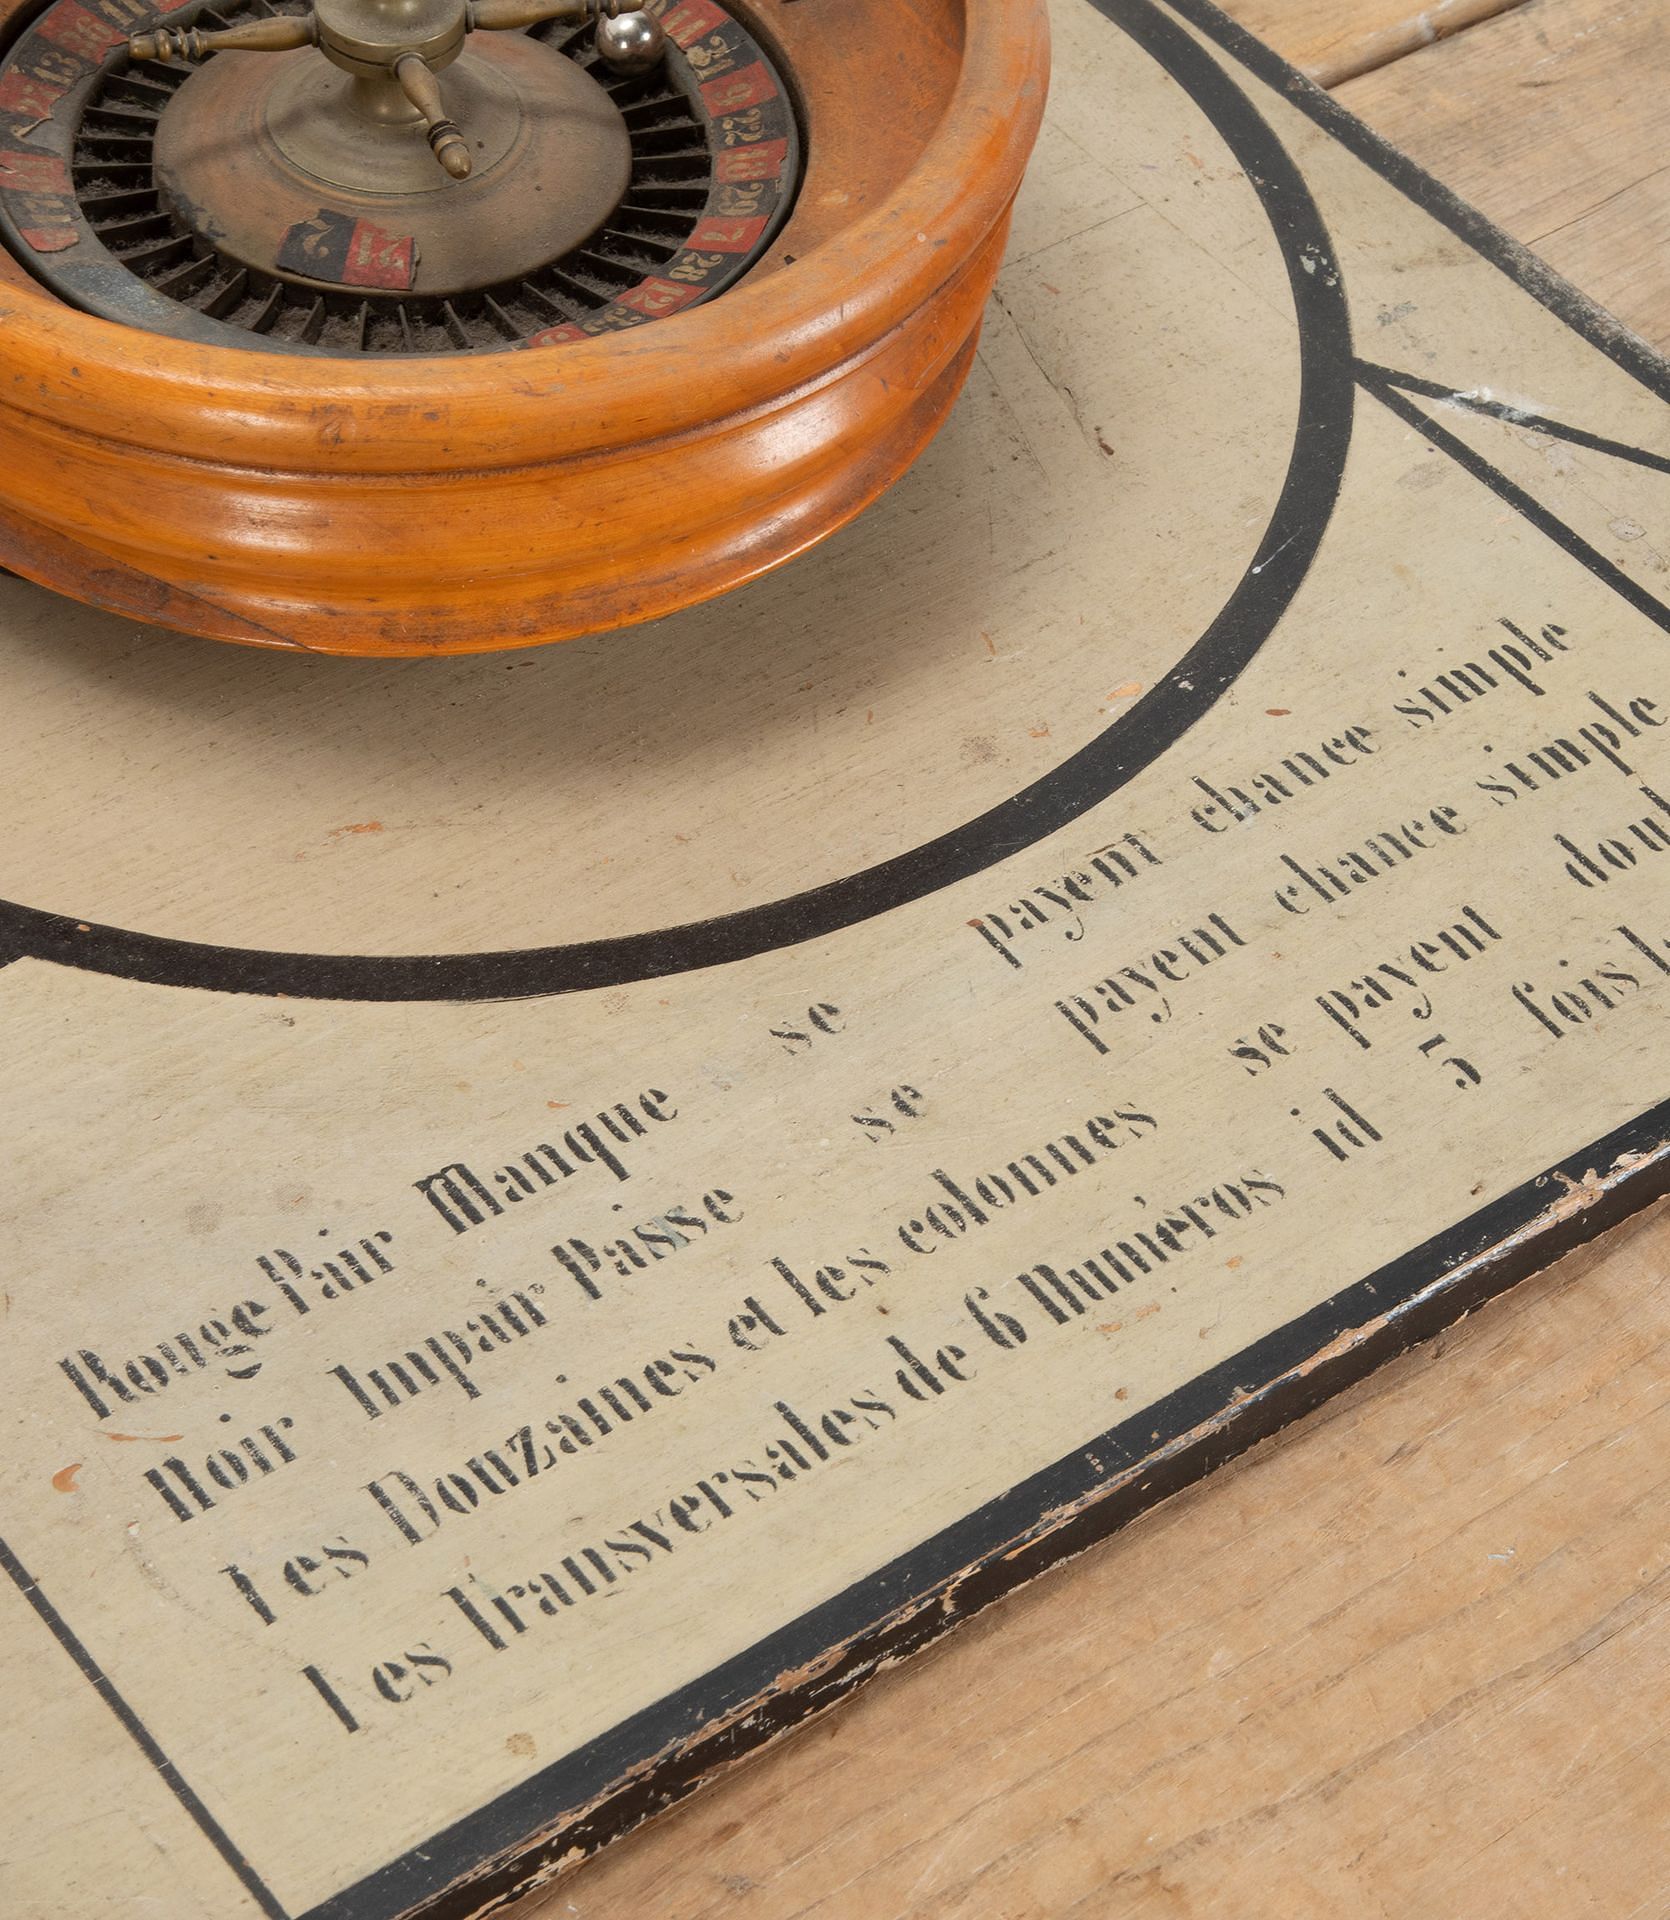 Rouge Pair Manque se payent chance simple
Noir Impair Passe se payent chance simple
Les Douzaines et les colonnes se payent
Les Transversales de 6 Numéros id 5 fois
11
36
13
27
9
22
18
29
7
28
12
35